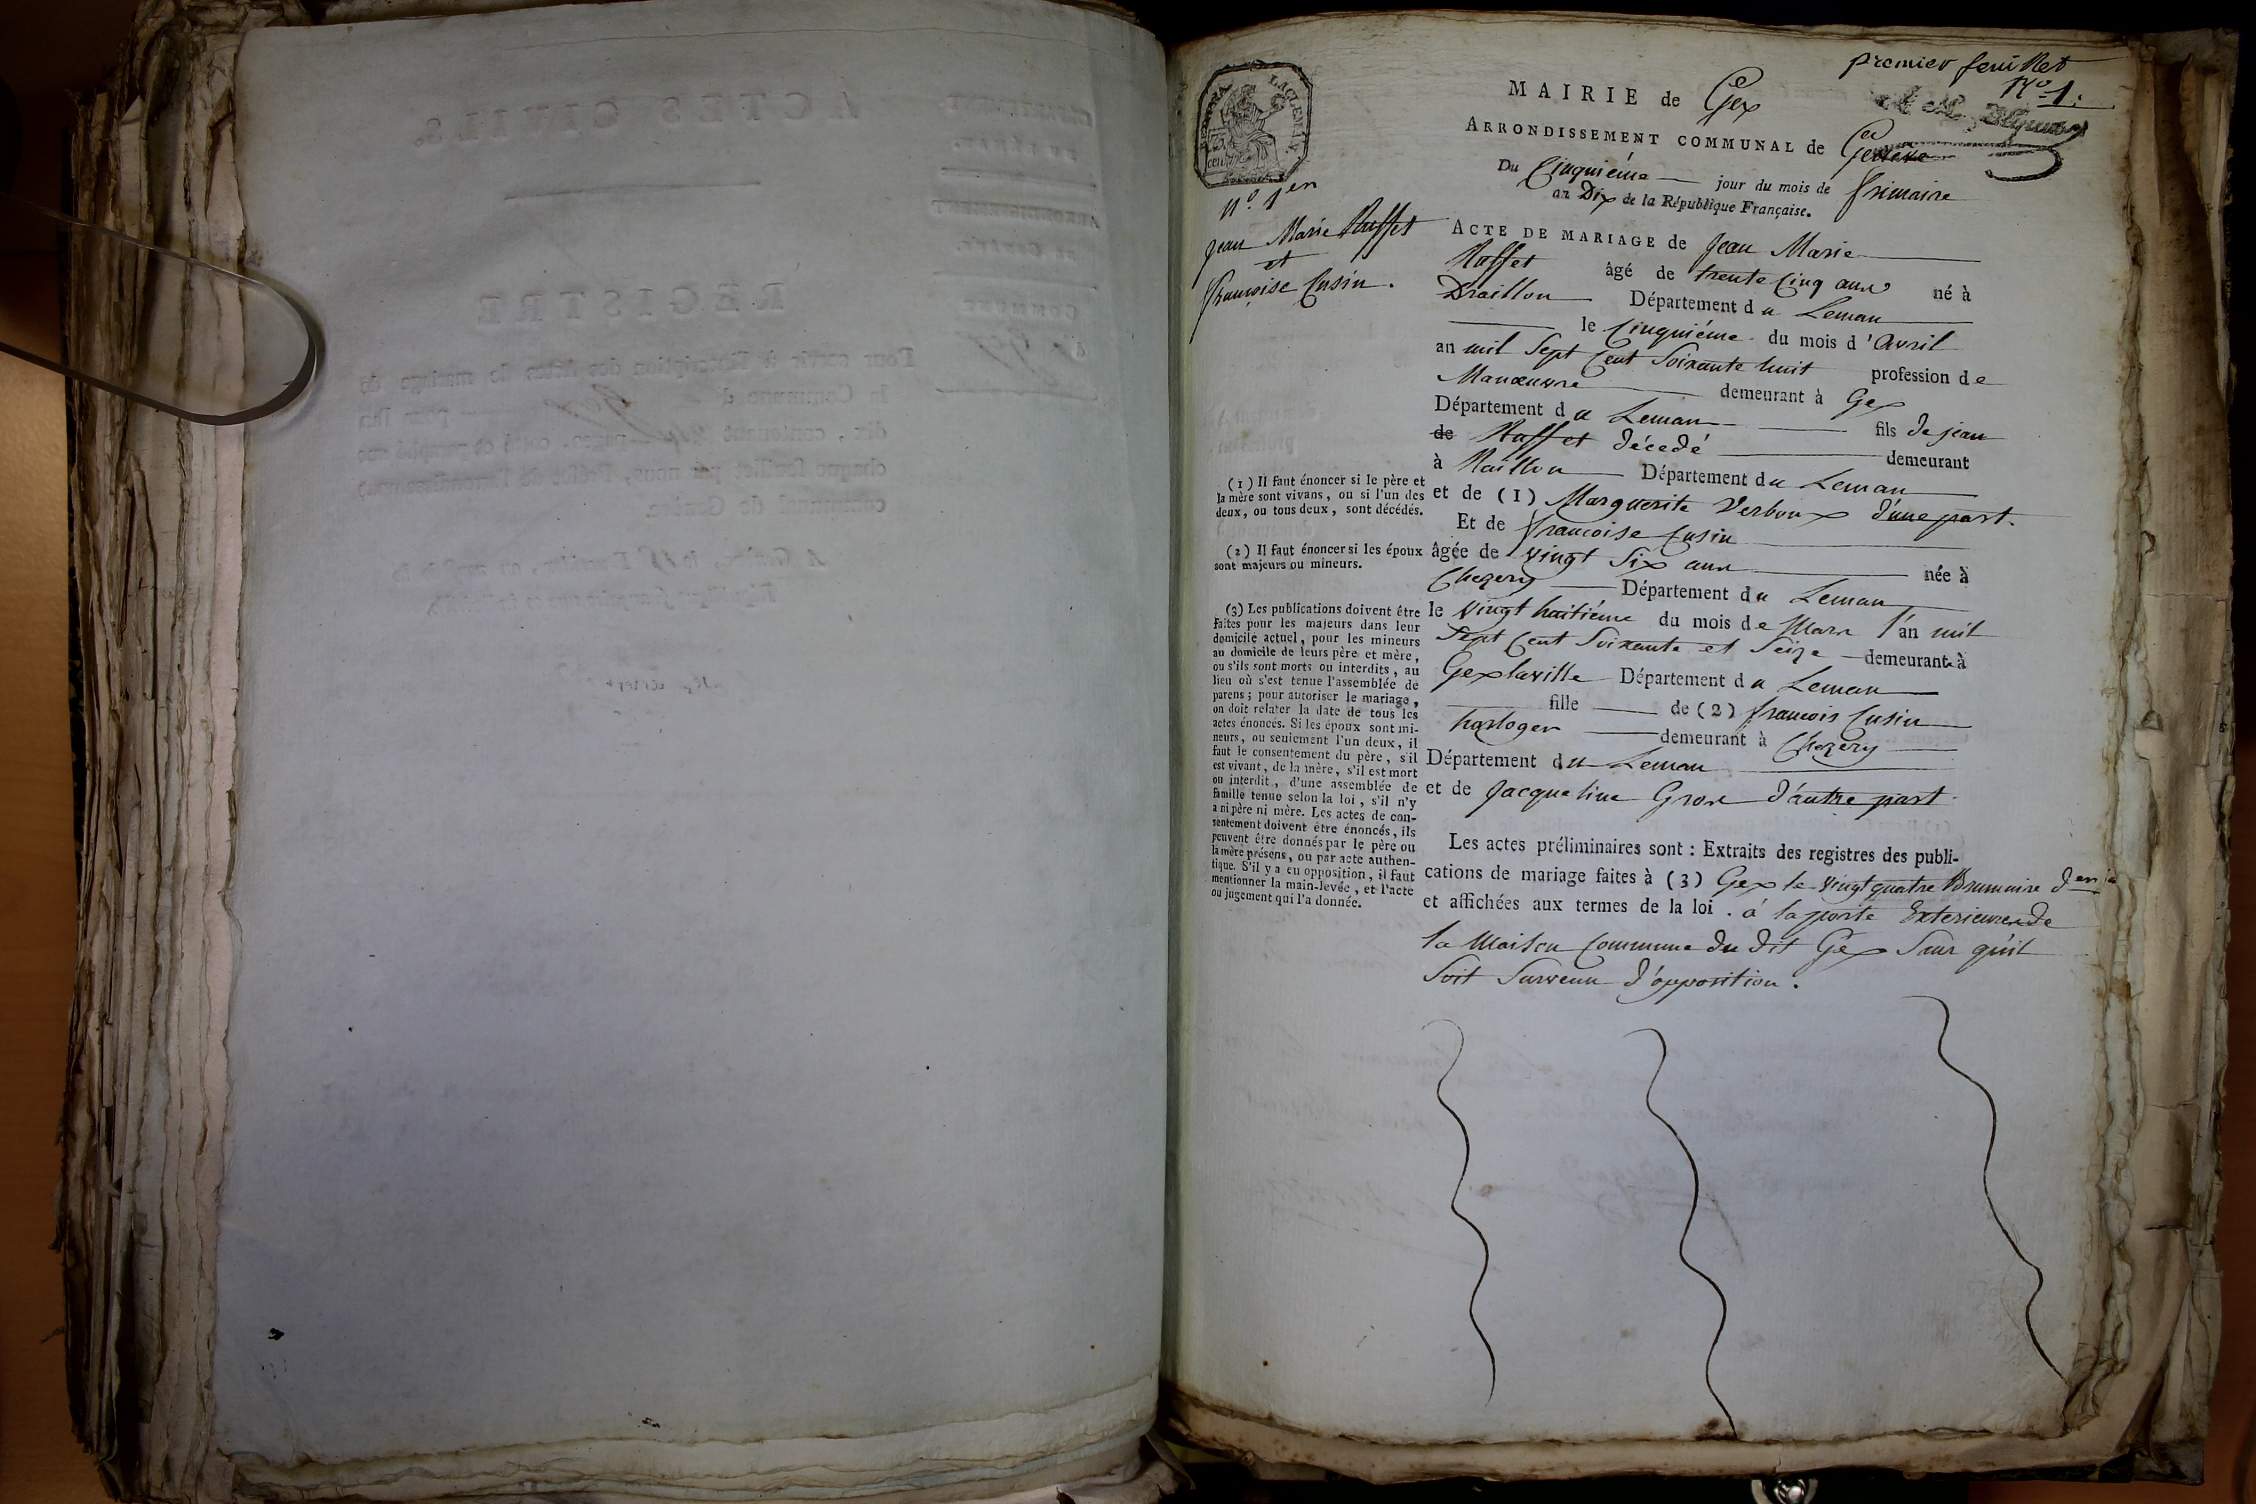 premier feuillet
N.º 1.
MAIRIE de Gex
ARRONDISSEMENT COMMUNAL de Genève
Du Cinquiéme jour du mois de frimaire
an Dix de la République Française.
75 cent.
n.º 1er
Jean Marie Ruffet
et
françoise Cusin.
ACTE DE MARIAGE de Jean Marie
Ruffet âgé de trente Cinq ans né à
Draillon Département du Leman
le Cinquiéme du mois d'Avril
an mil Sept Cent Soixante huit profession de
Manœuvre demeurant à Gex
Département du Leman fils de jean
de Ruffet décedé demeurant
à Département du Leman
et de (1) Marguerite Verboux d'une part.
Et de francoise Cusin
âgée de vingt Six ans née à
Chezery Département du Leman
le vingt huitiéme du mois de Mars l'an mil
Sept Cent Soixante et Seize demeurante à
Gex la ville Département du Leman
fille de (2) francois Cusin
horloger demeurant à Chezery
Département du Leman
et de Jacqueline Gros d'autre part.
Les actes préliminaires sont : Extraits des registres des publi-
cations de mariage faites à (3) Gex le vingt quatre Brumaire dernier
et affichées aux termes de la loi . à la porte Exterieure de
la Maison Commune du dit Gex Sans qu'il
Soit Survenu d'opposition.
(1) Il faut énoncer si le père et
la mère sont vivans, ou si l'un des
deux, ou tous deux, sont décédés.
(2) Il faut énoncer si les époux
sont majeurs ou mineurs.
(3) Les publications doivent être
faites pour les majeurs dans leur
domicile actuel, pour les mineurs
au domicile de leurs père et mère,
ou s'ils sont morts ou interdits, au
lieu où s'est tenue l'assemblée de
parens ; pour autoriser le mariage,
on doit relater la date de tous les
actes énoncés. Si les époux sont mi-
neurs, ou seulement l'un deux, il
faut le consentement du père, s'il
est vivant, de la mère, s'il est mort
ou interdit, d'une assemblée de
famille tenue selon la loi, s'il n'y
a ni père ni mère. Les actes de con-
sentement doivent être énoncés, ils
peuvent être donnés par le père ou
la mère présens, ou par acte authen-
tique. S'il y a eu opposition, il faut
mentionner la main-levée, et l'acte
ou jugement qui l'a donnée.